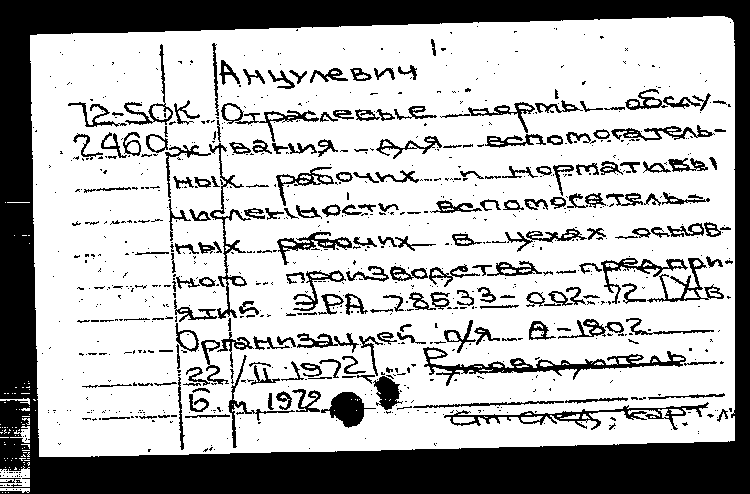 1.
Анцулевич
72-50К Отраслевые нормы обслу-
2460 живания для вспомогатель-
ных рабочих и нормативы
численности вспомогатель-
ных рабочих в цехах основ-
ного производства предпри-
ятий ЭРА 78533-002-72 [Утв.
Организацией п/я А-1802
22/II 1972]... Руководитель
Б.м, 1972
см. след. карт.